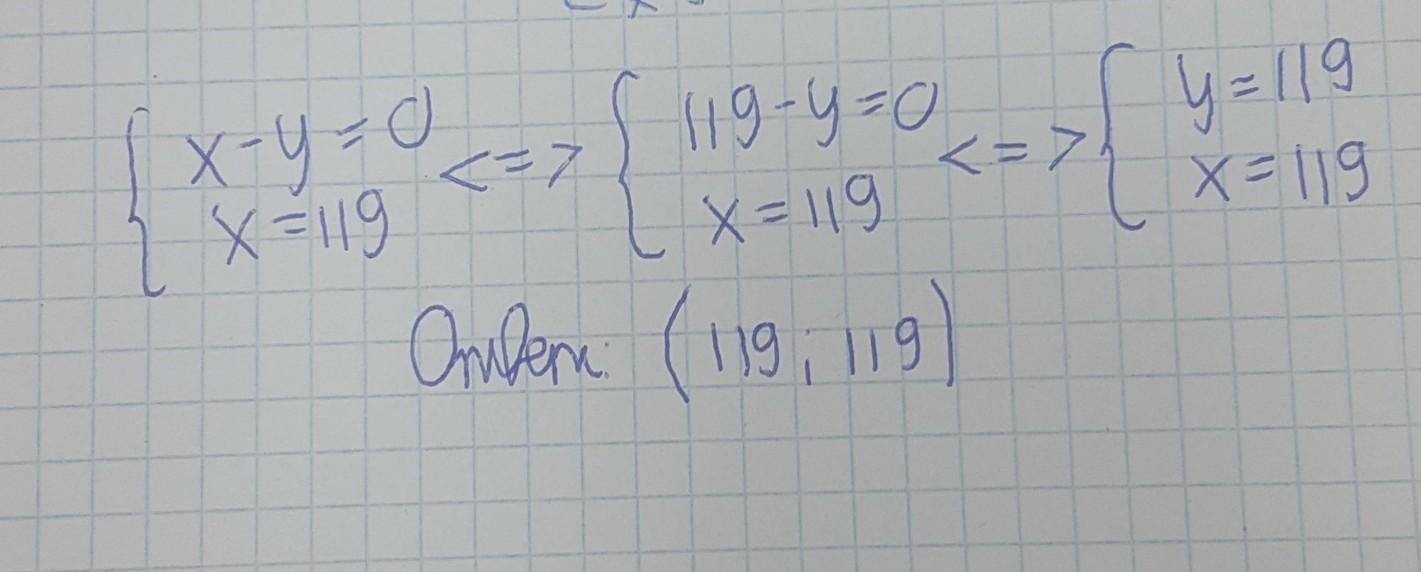 x-y=0 <=> 119-y=0 <=> y=119
x=119 x=119 x=119
Ответ: (119; 119)